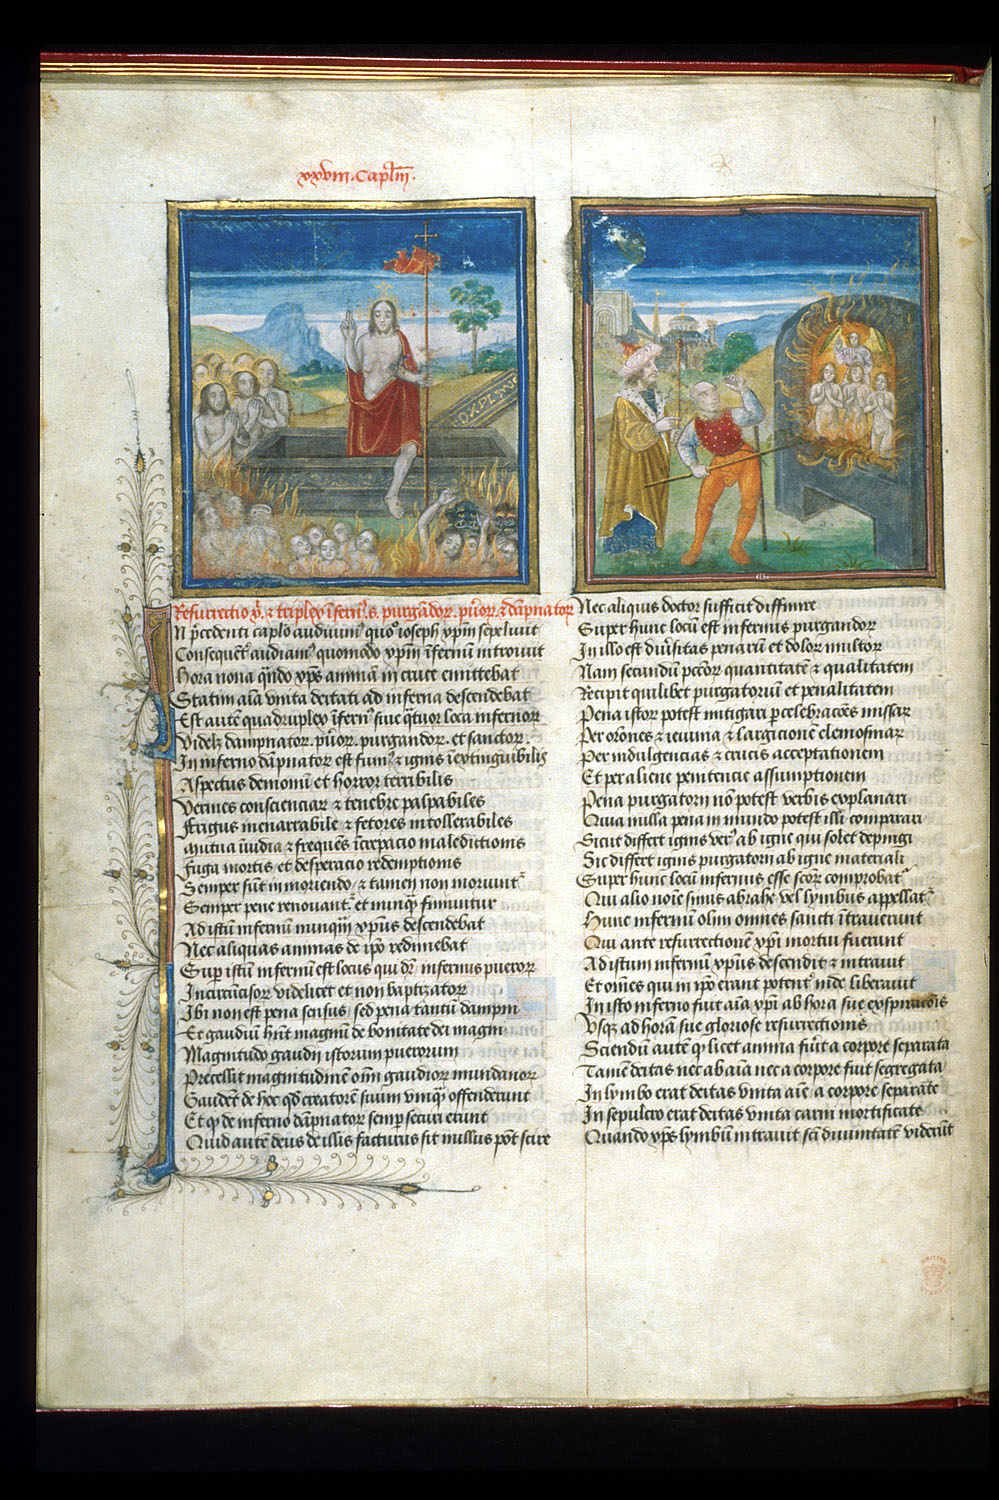 xxviii. Capl̄m̄.
Resurrectio xp̄i. et triplex īferī. s. purgādor. pu̾or. et dāpnator
In p̄cedenti caplo audiuimꝰ quoō ioseph xp̄m sepeliuit
Consequēt̾ audiamꝰ quomodo xp̄m īfernū introiuit
Hora nona qn̄do xp̄s animā in cruce emittebat
Statim aīa vnita deitati ad inferna descendebat
Est autē quadruplex īfernꝰ siue q̄tuor loca infernor
Videlꝫ dampnator. pu̾or. purgandor. et sanctor.
In inferno dāpnator est fumꝰ et ignis īextinguibilis
Aspectus demonū et horror terribilis
Vermes conscienciar et tenebre palpabiles
Frigus inenarrabile et fetores intollerabiles
Mutua īuidia et frequēs īcrepacio maledictionis
Fuga mortis et desperacio redemptionis
Semper sūt in moriendo et tamen non moriunt̾
Semper pene renouant̾ et nunq̄ finiuntur
Ad istū infernū nunq̄ xp̄us descendebat
Nec aliquas animas de ip̄o redimebat
Sup̱ istū infernū est locus qui dr̄ infernus pueror
Incircūcisor videlicet et non baptizator
Ibi non est pena sensus sed pena tantū dampni
Et gaudiū hn̄t magnū de bonitate dei magni
Magnitudo gaudii istorum puerorum
Precellit magnitudinem oīm gaudior mundanor
Gaudēt de hoc qd̄ creatorē suum nunq̄ offenderunt
Et q̱ de inferno dāpnator semp̱ securi erunt
Quid autē deus de illis facturus sit nullus pōt scire
Nec aliquis doctor sufficit diffinire
Super hunc locū est infernus purgandor
In illo est diu̾sitas penarū et dolor multor
Nam secundū pc̄cor quantitatē et qualitatem
Recipit quilibet purgatoriū et penalitatem
Pena istor potest mitigari p̱ celebracōes missar
Per or̄ones et ieiunia et largicionē elemosinar
Per indulgencias et crucis acceptationem
Et per aliene penitencie assumptionem
Pena purgatorii nō potest verbis explanari
Quia nulla pena in mundo potest illi comparari
Sicut differt ignis verꝰ ab igne qui solet depingi
Sic differt ignis purgatorii ab igne materiali
Super hunc locū infernus esse scōr comprobat̾
Qui alio noīe sinus abrahe vel lymbus appellat̾
Hunc infernū olim omnes sancti ītrauerunt
Qui ante resurrectionē xp̄i mortui fuerunt
Ad istum infernū xp̄us descendit et intrauit
Et om̄es qui in ip̄o erant potent̾ inde liberauit
In isto inferno fuit aīa xp̄i ab hora sue exspiraciōis
Vsqꝫ ad horā sue gloriose resurrectionis
Sciendū autē q̱ licet anima fu̾it a corpore separata
Tamē deitas nec ab aīa nec a corpore fuit segregata
In lymbo erat deitas vnita aīe a corpore separate
In sepulcro erat deitas vnita carni mortificate
Quando xp̄s lymbū intrauit scī diuinitatē viderūt